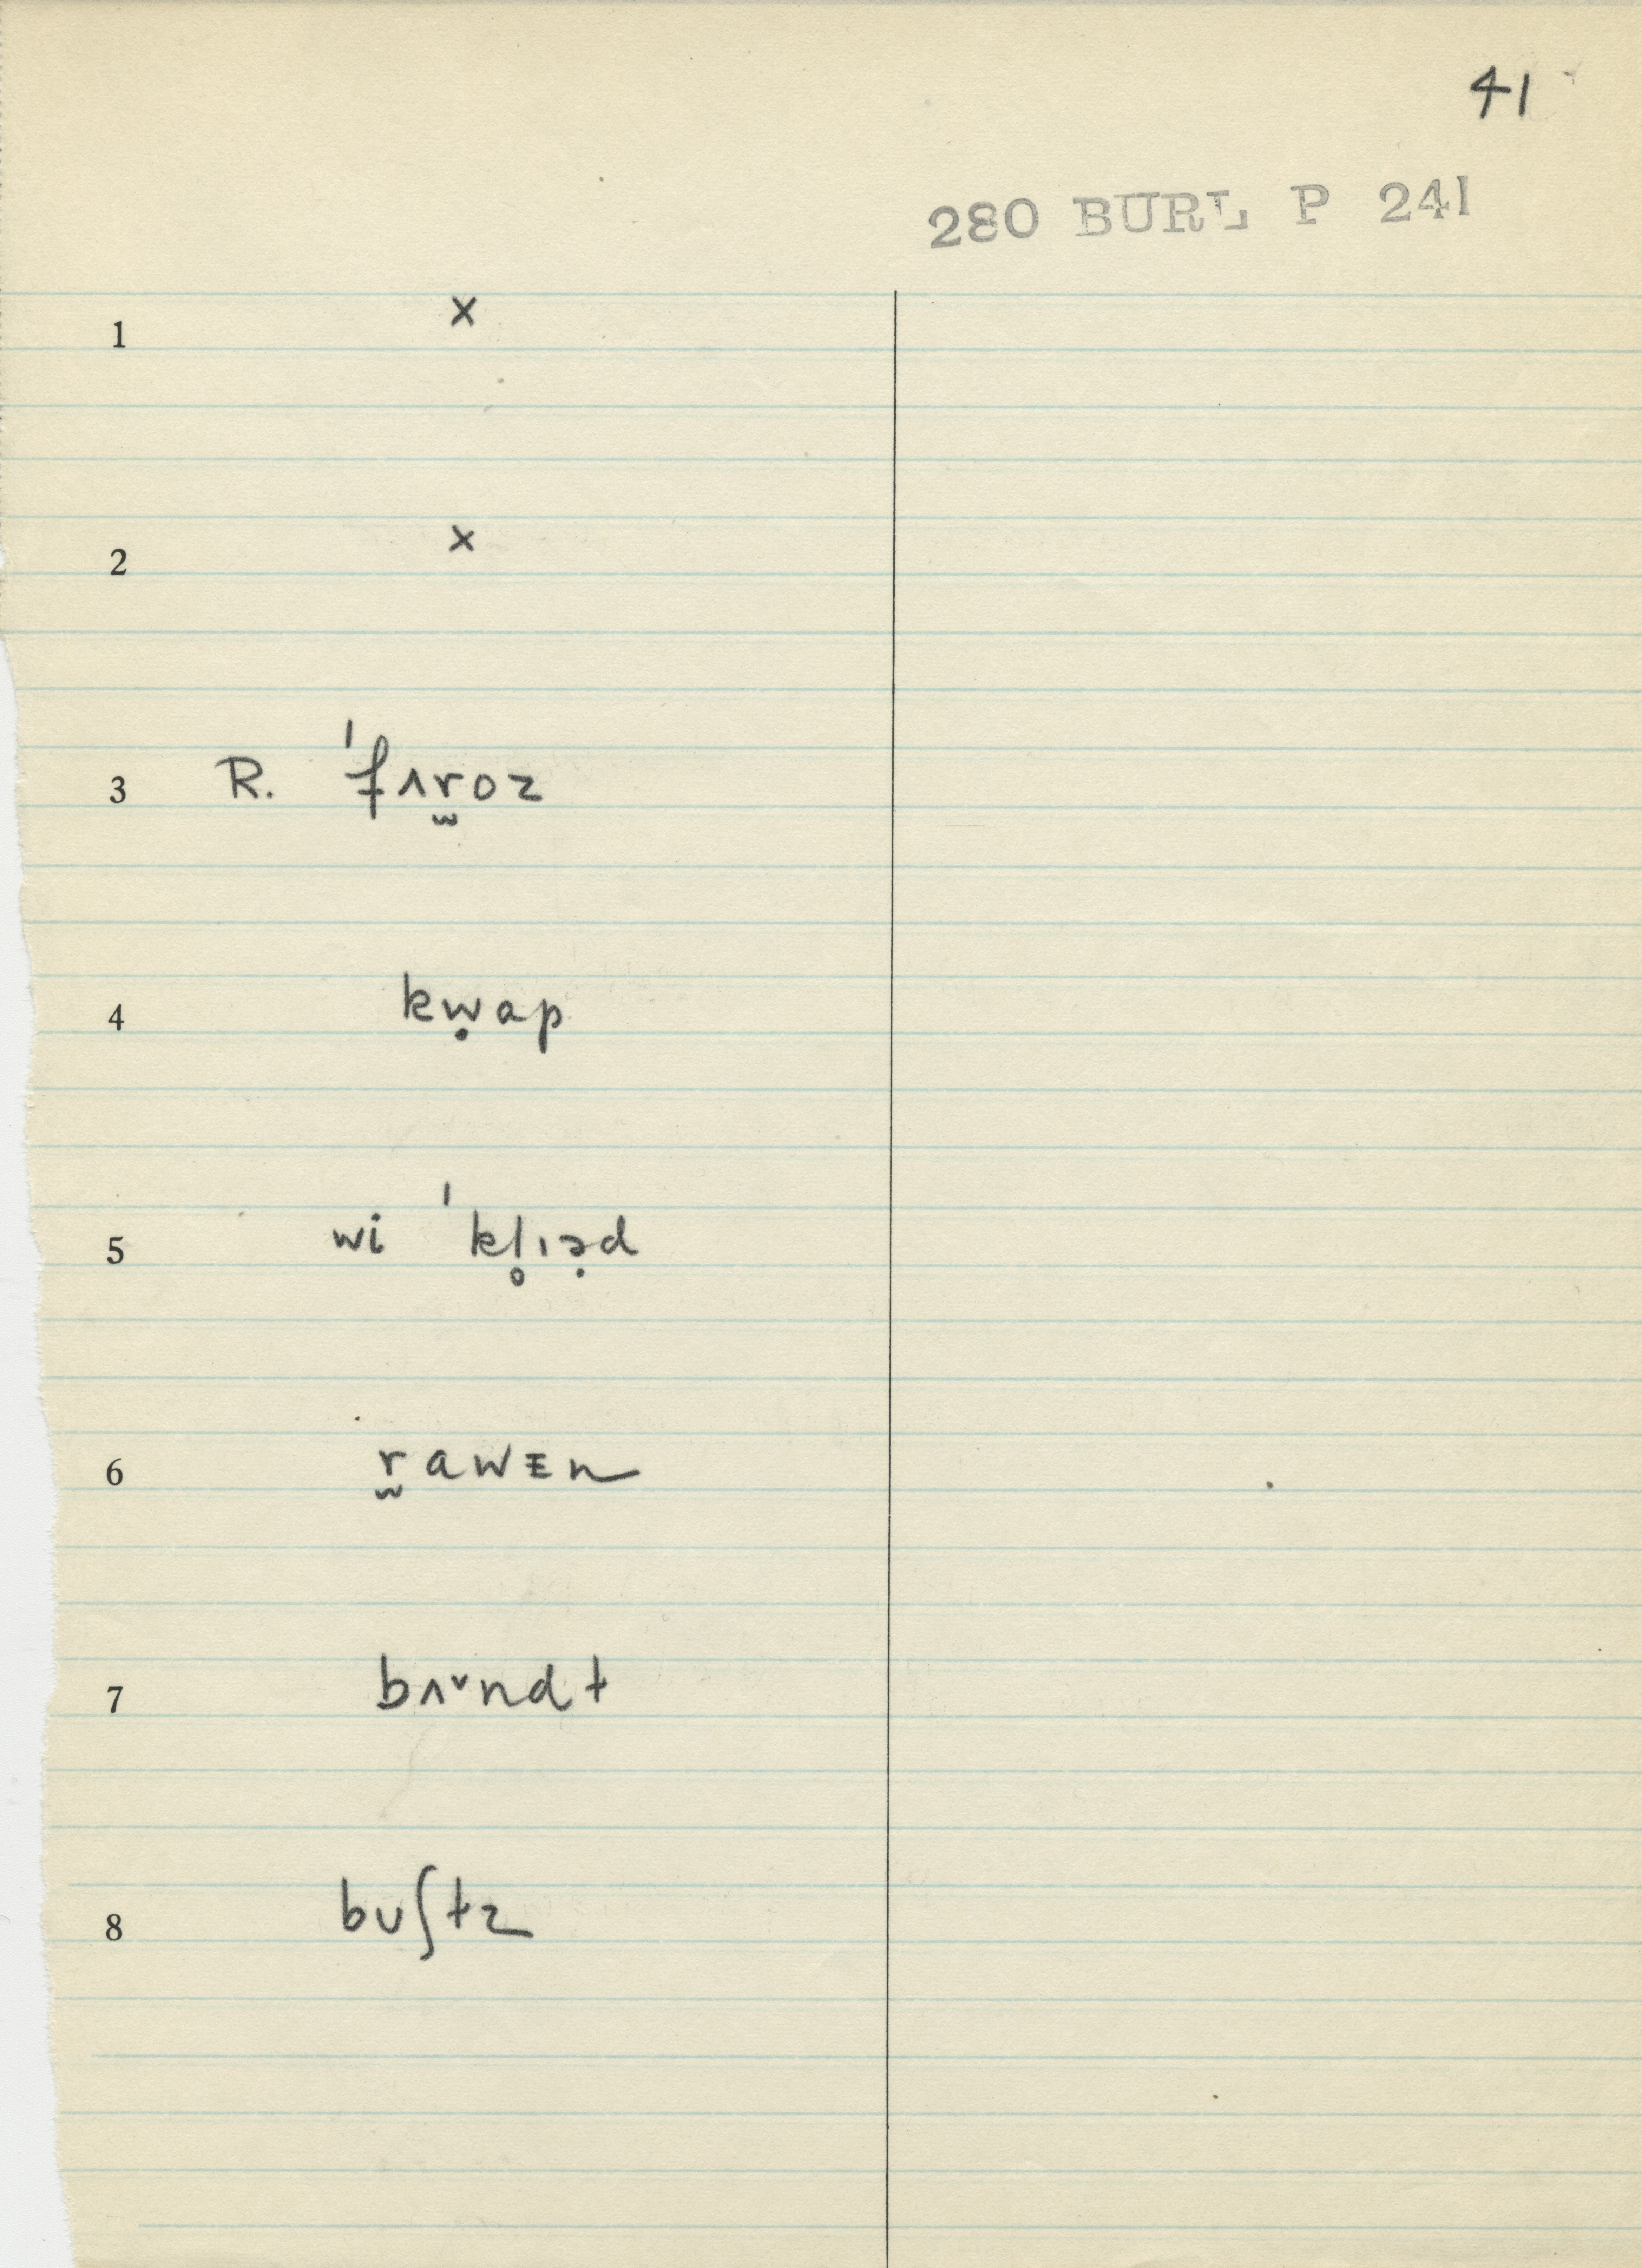 41
280 BURL P 241
1 x
2 x
3 R. ˈfʌr̫oz
4 kẉap
5 wi ˈkl̥ɪə̣d
6 r̫awᴇn
7 bʌᵛndt
8 bʊʃtz